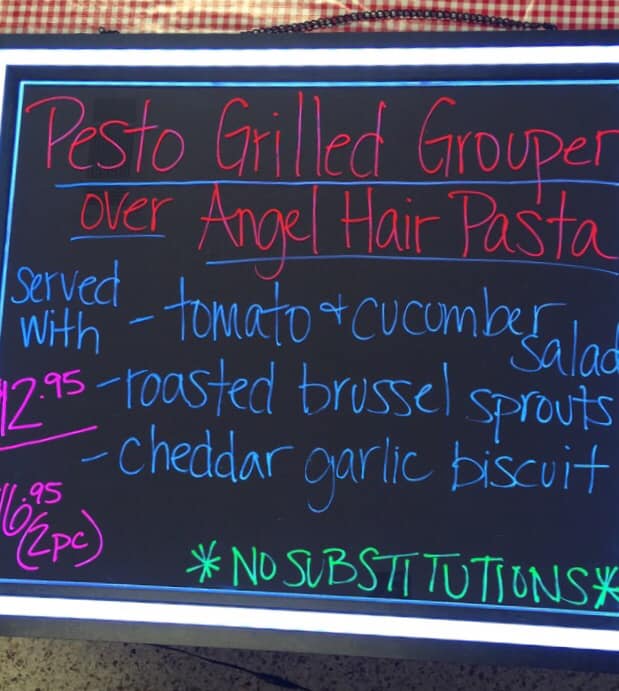 Pesto Grilled Grouper
over Angel Hair Pasta
served
with - tomato + cucumber
salad
12.95 - roasted brussel sprouts
- cheddar garlic biscuit
16.95
(2pc)
*NO SUBSTITUTIONS*